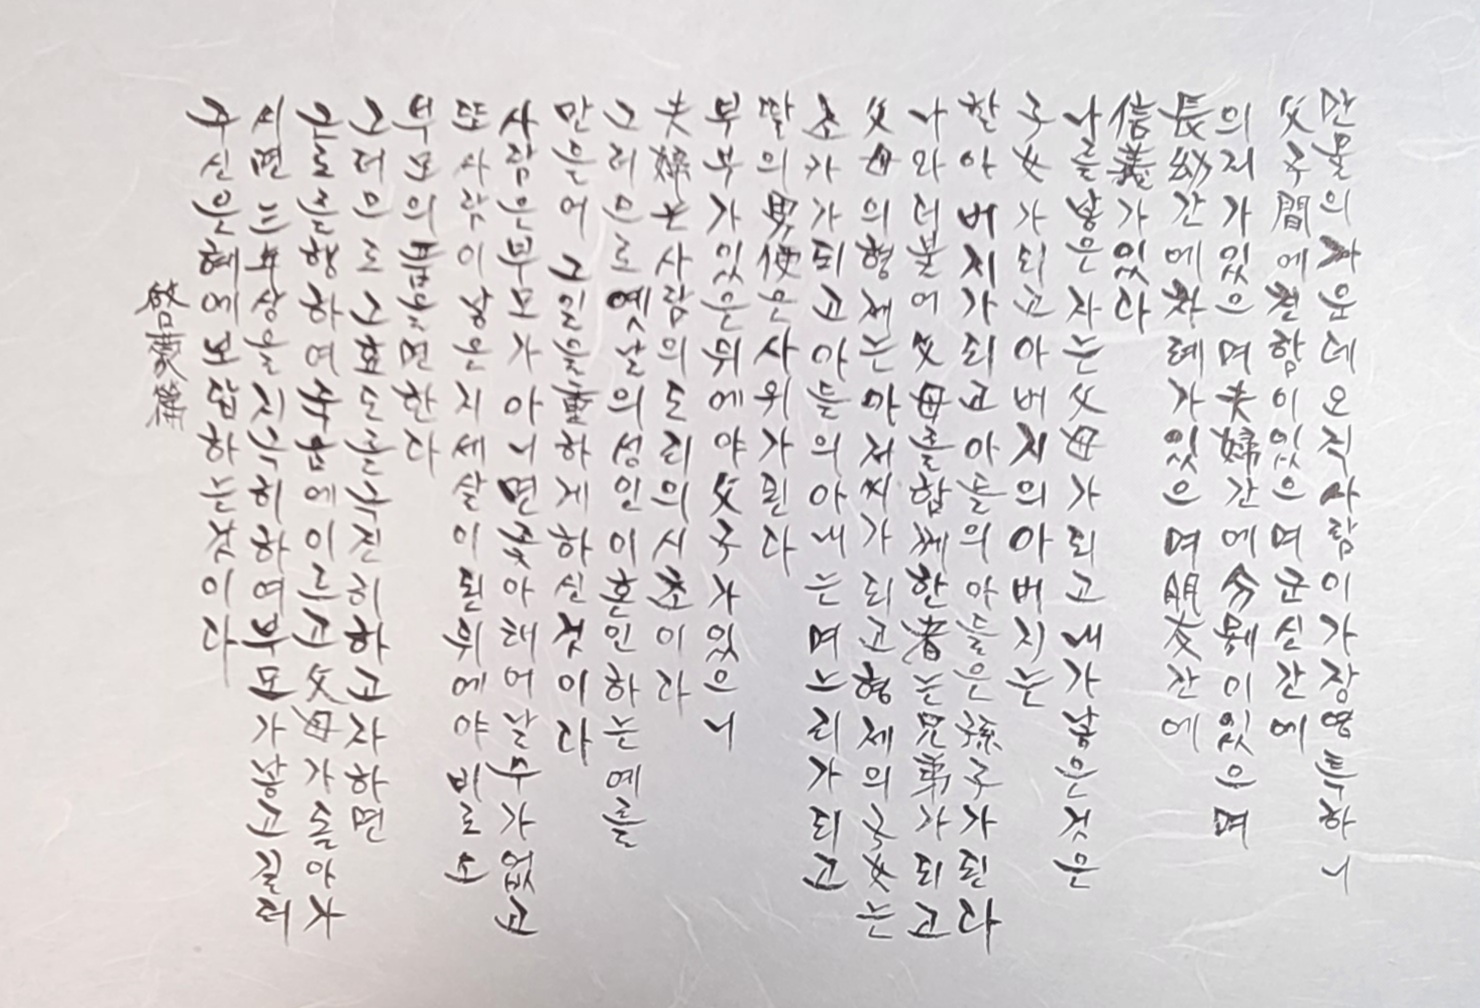 만물의 가운데 오직 사람이 가장 영특하니
父子間에 친함이 있으며 군신간에
의리가 있으며 夫婦간에 分別이 있으며
長幼간에 차례가 있으며 朋友간에
信義가 있다
나를 낳은 자는 父母가 되고 내가 낳은 것은
子女가 되고 아버지의 아버지는
할아버지가 되고 아들의 아들은 孫子가 된다
나와 더불어 父母를 함께 한 者는 兄弟가 되고
父母의 형제는 아저씨가 되고 형제의 子女는
조카가 되고 아들의 아내는 며느리가 되고
딸의 男便은 사위가 된다
부부가 있은 뒤에야 父子가 있으니
夫婦는 사람의 도리의 시초이라
그러므로 옛날의 성인이 혼인하는 예를
만들어 그 일을 重하게 하신 것이라
사람은 부모가 아니면 좇아 태어날 수가 없고
또 사람이 낳은지 세살이 된 뒤에야 비로소
부모의 품을 면한다
그러므로 그 효도를 극진히 하고자 하면
근로를 행하여 죽음에 이르고 父母가 돌아가
시면 三年상을 지극히 하여 부모가 낳고 길러
주신 은혜에 보답하는 것이다
啓蒙篇